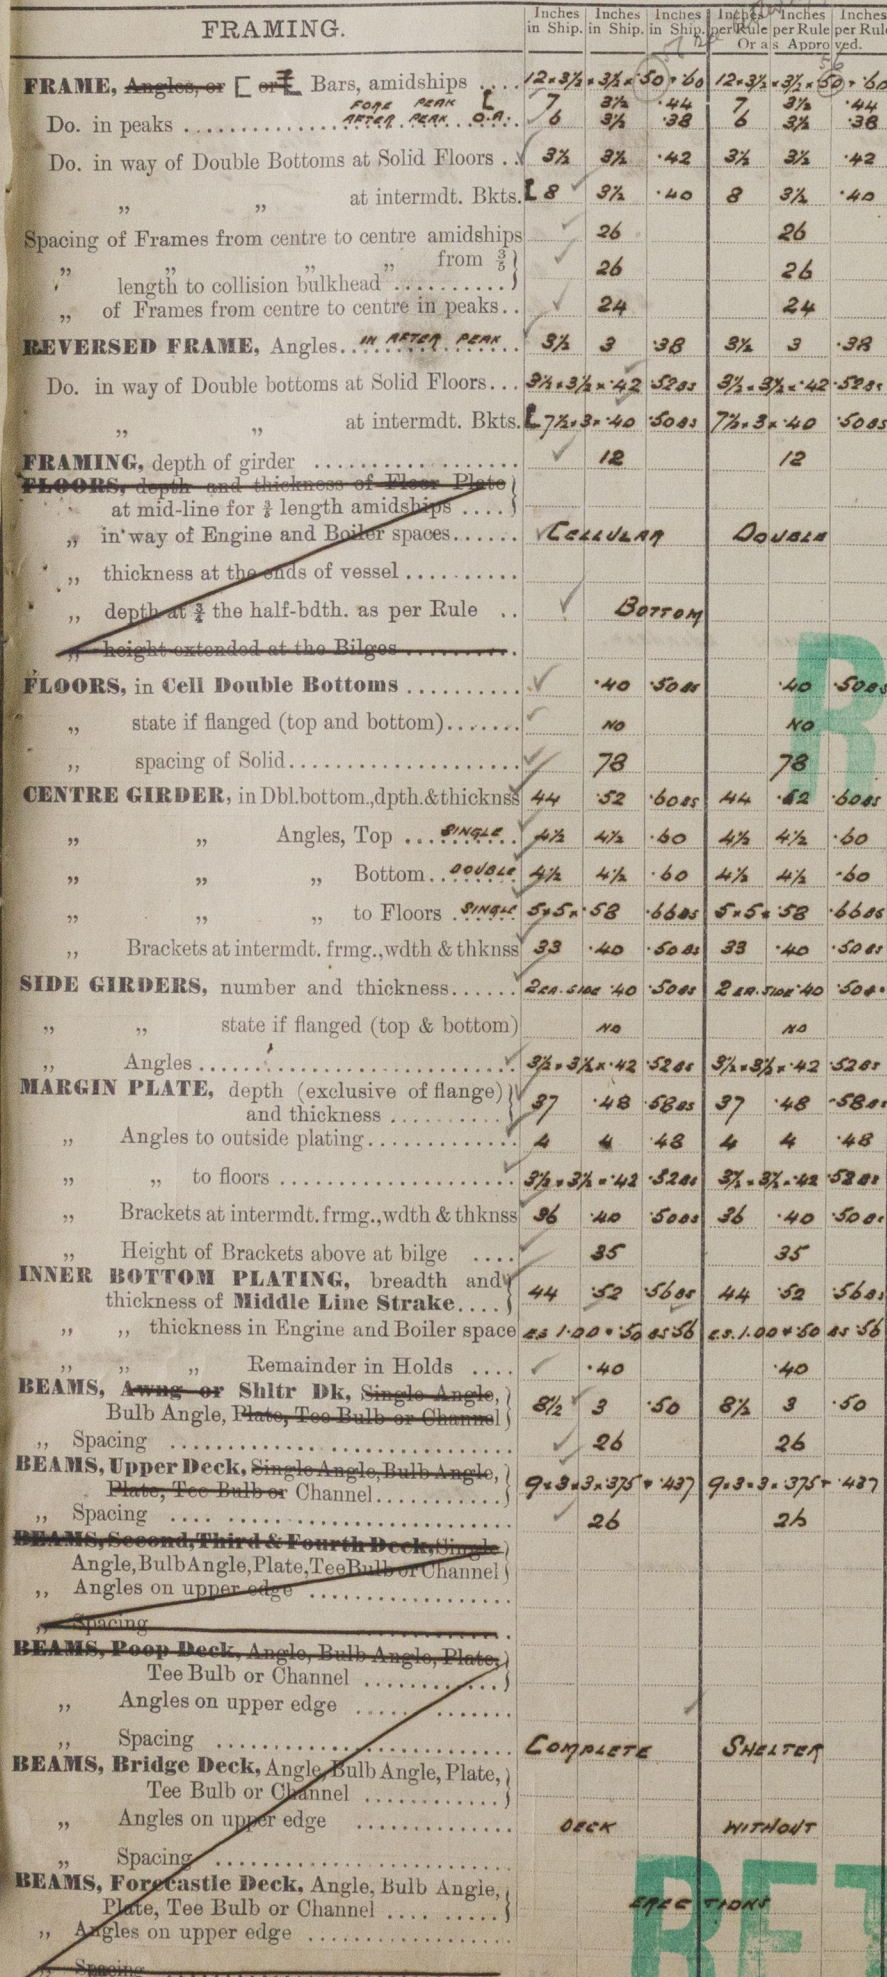 FRAMING.
Inches in Ship. Inches in Ship. Inches in Ship. Inches per Rule Inches per Rule Inches per Rule
Or as Approved.
FRAME, Angles, or [ or Bars, amidships .... 12×3½×3½×·50+·60 12×3½×3½×·50+·60
56
FORE PEAK [ 7 3½ ·44 7 3½ ·44
Do. in peaks .... AFTER PEAK O.A. 6 3½ ·38 6 3½ ·38
Do. in way of Double Bottoms at Solid Floors .. 3½ 3½ ·42 3½ 3½ ·42
„ „ at intermdt. Bkts. [ 8 3½ ·40 8 3½ ·40
Spacing of Frames from centre to centre amidships 26 26
„ „ „ „ from ⅗
length to collision bulkhead .......... 26 26
„ of Frames from centre to centre in peaks.. 24 24
REVERSED FRAME, Angles.. IN AFTER PEAK 3½ 3 ·38 3½ 3 ·38
Do. in way of Double bottoms at Solid Floors... 3½×3½×·42 ·52BS 3½×3½×·42 ·52BS
„ „ at intermdt. Bkts. [ 7½×3×·40 ·50BS 7½×3×·40 ·50BS
FRAMING, depth of girder .................. 12 12
FLOORS, depth and thickness of Floor Plate
at mid-line for ⅗ length amidships ....
„ in way of Engine and Boiler spaces...... CELLULAR DOUBLE
„ thickness at the ends of vessel ..........
„ depth at ¾ the half-bdth. as per Rule .. BOTTOM
„ height extended at the Bilges ..........
FLOORS, in Cell Double Bottoms .......... ·40 ·50BS ·40 ·50BS
„ state if flanged (top and bottom)....... NO NO
„ spacing of Solid...................... 78 78
CENTRE GIRDER, in Dbl.bottom.,dpth.&thicknss 44 ·52 ·60BS 44 ·52 ·60BS
„ „ Angles, Top ... SINGLE 4½ 4½ ·60 4½ 4½ ·60
„ „ „ Bottom.. DOUBLE 4½ 4½ ·60 4½ 4½ ·60
„ „ „ to Floors . SINGLE 5×5×·58 ·66BS 5×5×·58 ·66BS
„ Brackets at intermdt. frmg.,wdth & thknss 33 ·40 ·50BS 33 ·40 ·50BS
SIDE GIRDERS, number and thickness...... 2 EA. SIDE ·40 ·50BS 2 EA. SIDE ·40 ·50
„ „ state if flanged (top & bottom) NO NO
„ Angles .............................. 3½×3½×·42 ·52BS 3½×3½×·42 ·52BS
MARGIN PLATE, depth (exclusive of flange)
and thickness .......... 37 ·48 ·58BS 37 ·48 ·58BS
„ Angles to outside plating............. 4 4 ·48 4 4 ·48
„ „ to floors ...................... 3½×3½×·42 ·52BS 3½×3½×·42 ·52BS
„ Brackets at intermdt. frmg.,wdth & thknss 36 ·40 ·50BS 36 ·40 ·50BS
„ Height of Brackets above at bilge .... 35 35
INNER BOTTOM PLATING, breadth and
thickness of Middle Line Strake.... 44 ·52 ·56BS 44 ·52 ·56BS
„ „ thickness in Engine and Boiler space E.S. 1.00+·50 BS ·56 E.S. 1.00+·50 BS ·56
„ „ „ Remainder in Holds .... ·40 ·40
BEAMS, Awng or Shltr Dk, Single Angle,
Bulb Angle, Plate, Tee Bulb or Channel 8½ 3 ·50 8½ 3 ·50
„ Spacing .............................. 26 26
BEAMS, Upper Deck, Single Angle, Bulb Angle,
Plate, Tee Bulb or Channel............ 9×3×3×·375+·437 9×3×3×·375+·437
„ Spacing .............................. 26 26
BEAMS, Second, Third & Fourth Deck, Single
Angle, Bulb Angle, Plate, Tee Bulb or Channel
„ Angles on upper edge ..................
„ Spacing
BEAMS, Poop Deck, Angle, Bulb Angle, Plate,
Tee Bulb or Channel ............
„ Angles on upper edge ............
„ Spacing .................... COMPLETE SHELTER
BEAMS, Bridge Deck, Angle, Bulb Angle, Plate,
Tee Bulb or Channel ............
„ Angles on upper edge ............ DECK WITHOUT
„ Spacing ....................
BEAMS, Forecastle Deck, Angle, Bulb Angle,
Plate, Tee Bulb or Channel .......... ERECTIONS
„ Angles on upper edge ............
„ Spacing
R
RET